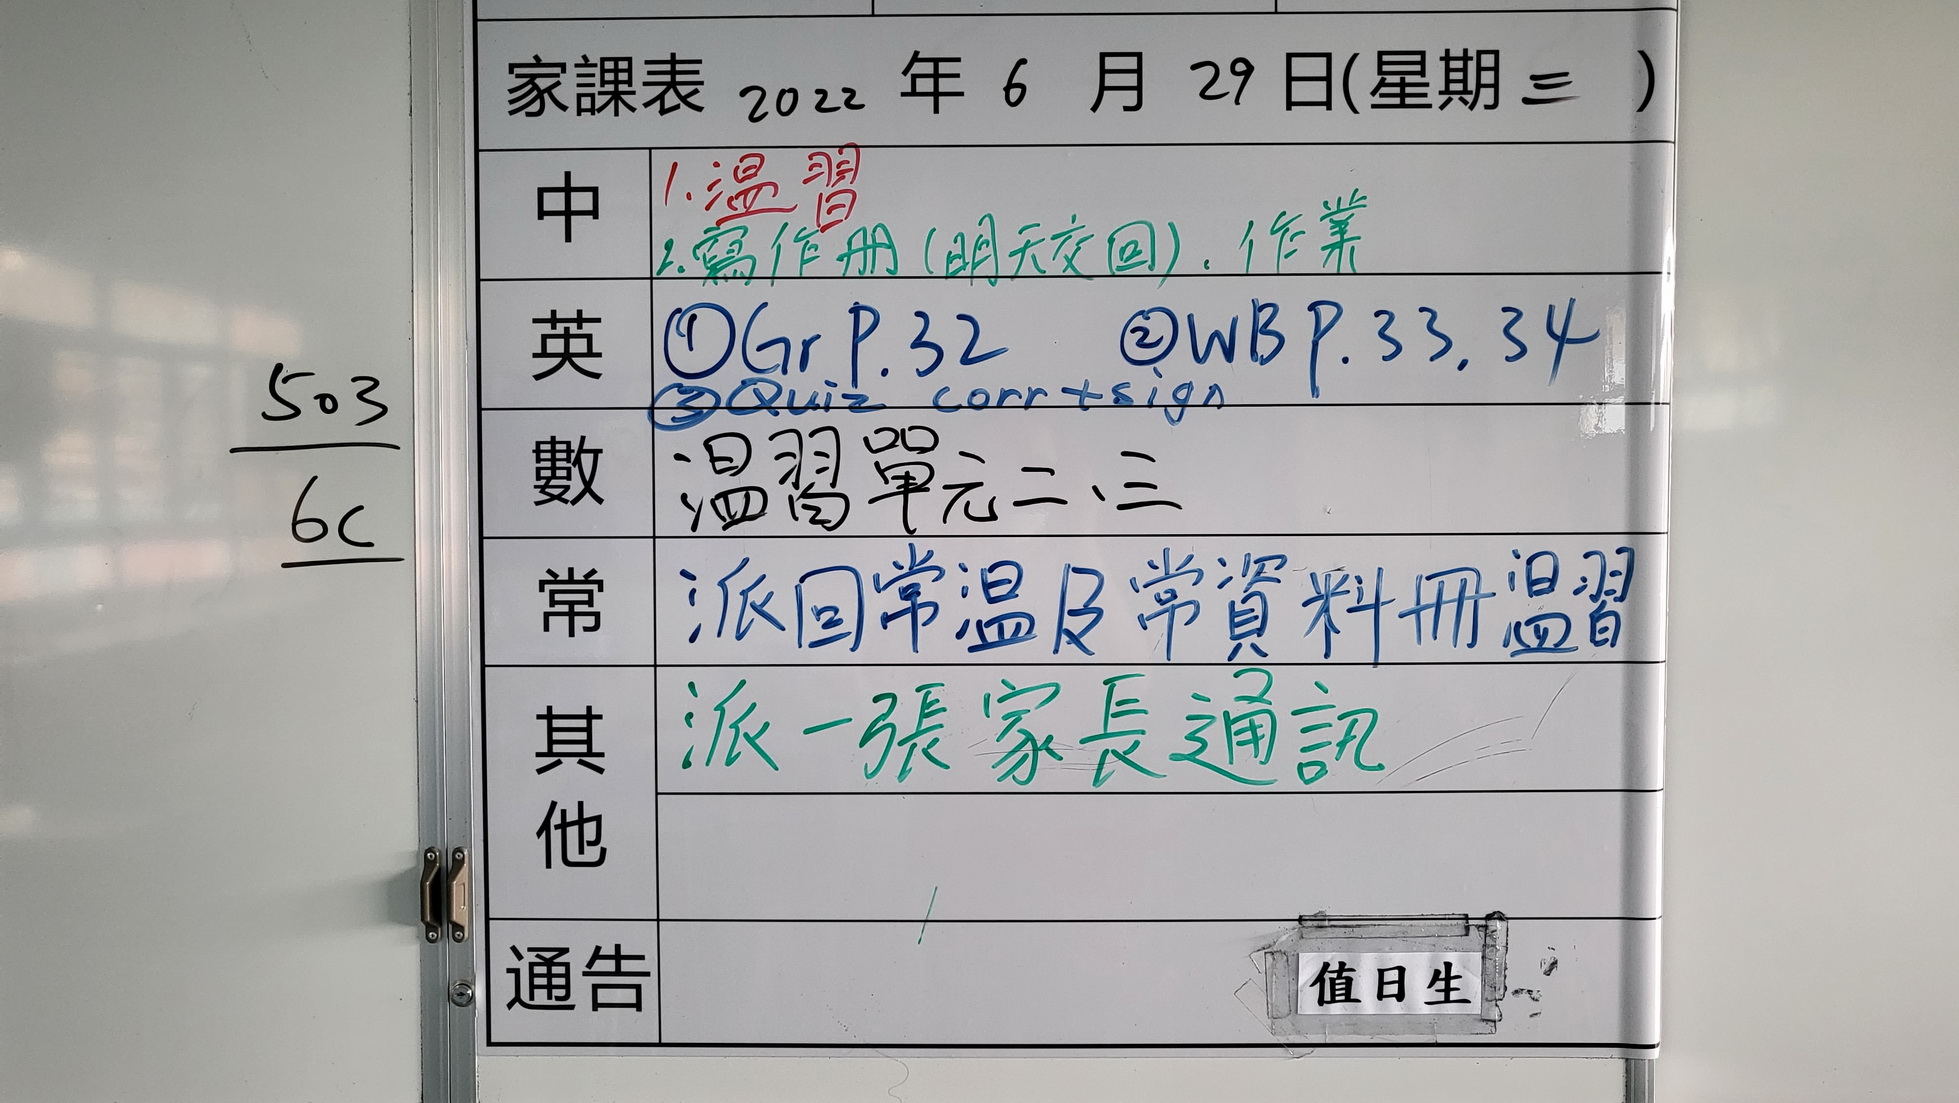 家課表 2022 年 6 月 29 日(星期三)
503
6C
中
1.温習
2.寫作册(明天交回).作業
英
①Gr P.32 ②WB P.33,34
③Quiz corr+sign
數
温習單元二、三
常
派回常温及常資料冊温習
其他
派一張家長通訊
通告
值日生